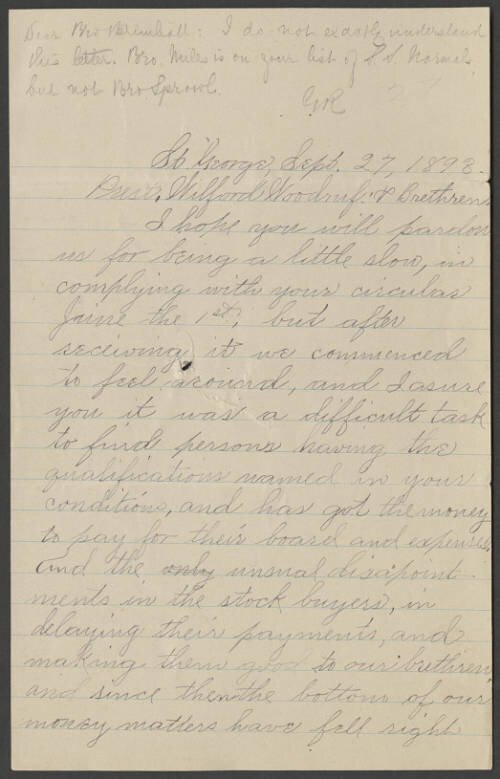 Dear Bro Brimhall: I do not exactly understand
this letter. Bro. Miles is on your list of S. S. Normal
but not Bro Sprowl.
GR
St George, Sept. 27, 1893.
Prest. Wilford Woodruf. & Brethren
I hope you will pardon
us for being a little slow, in
complying with your circular
June the 1st, but after
receiving it we commenced
to feel around, and I asure
you it was a difficult task
to find persons having the
qualifications named in your
conditions, and has got the money
to pay for their board and expenses,
and the only unusual disapoint-
ments in the stock buyers, in
delaying their payments, and
making them good to our brethren,
and since then the bottom of our
money matters have fell right